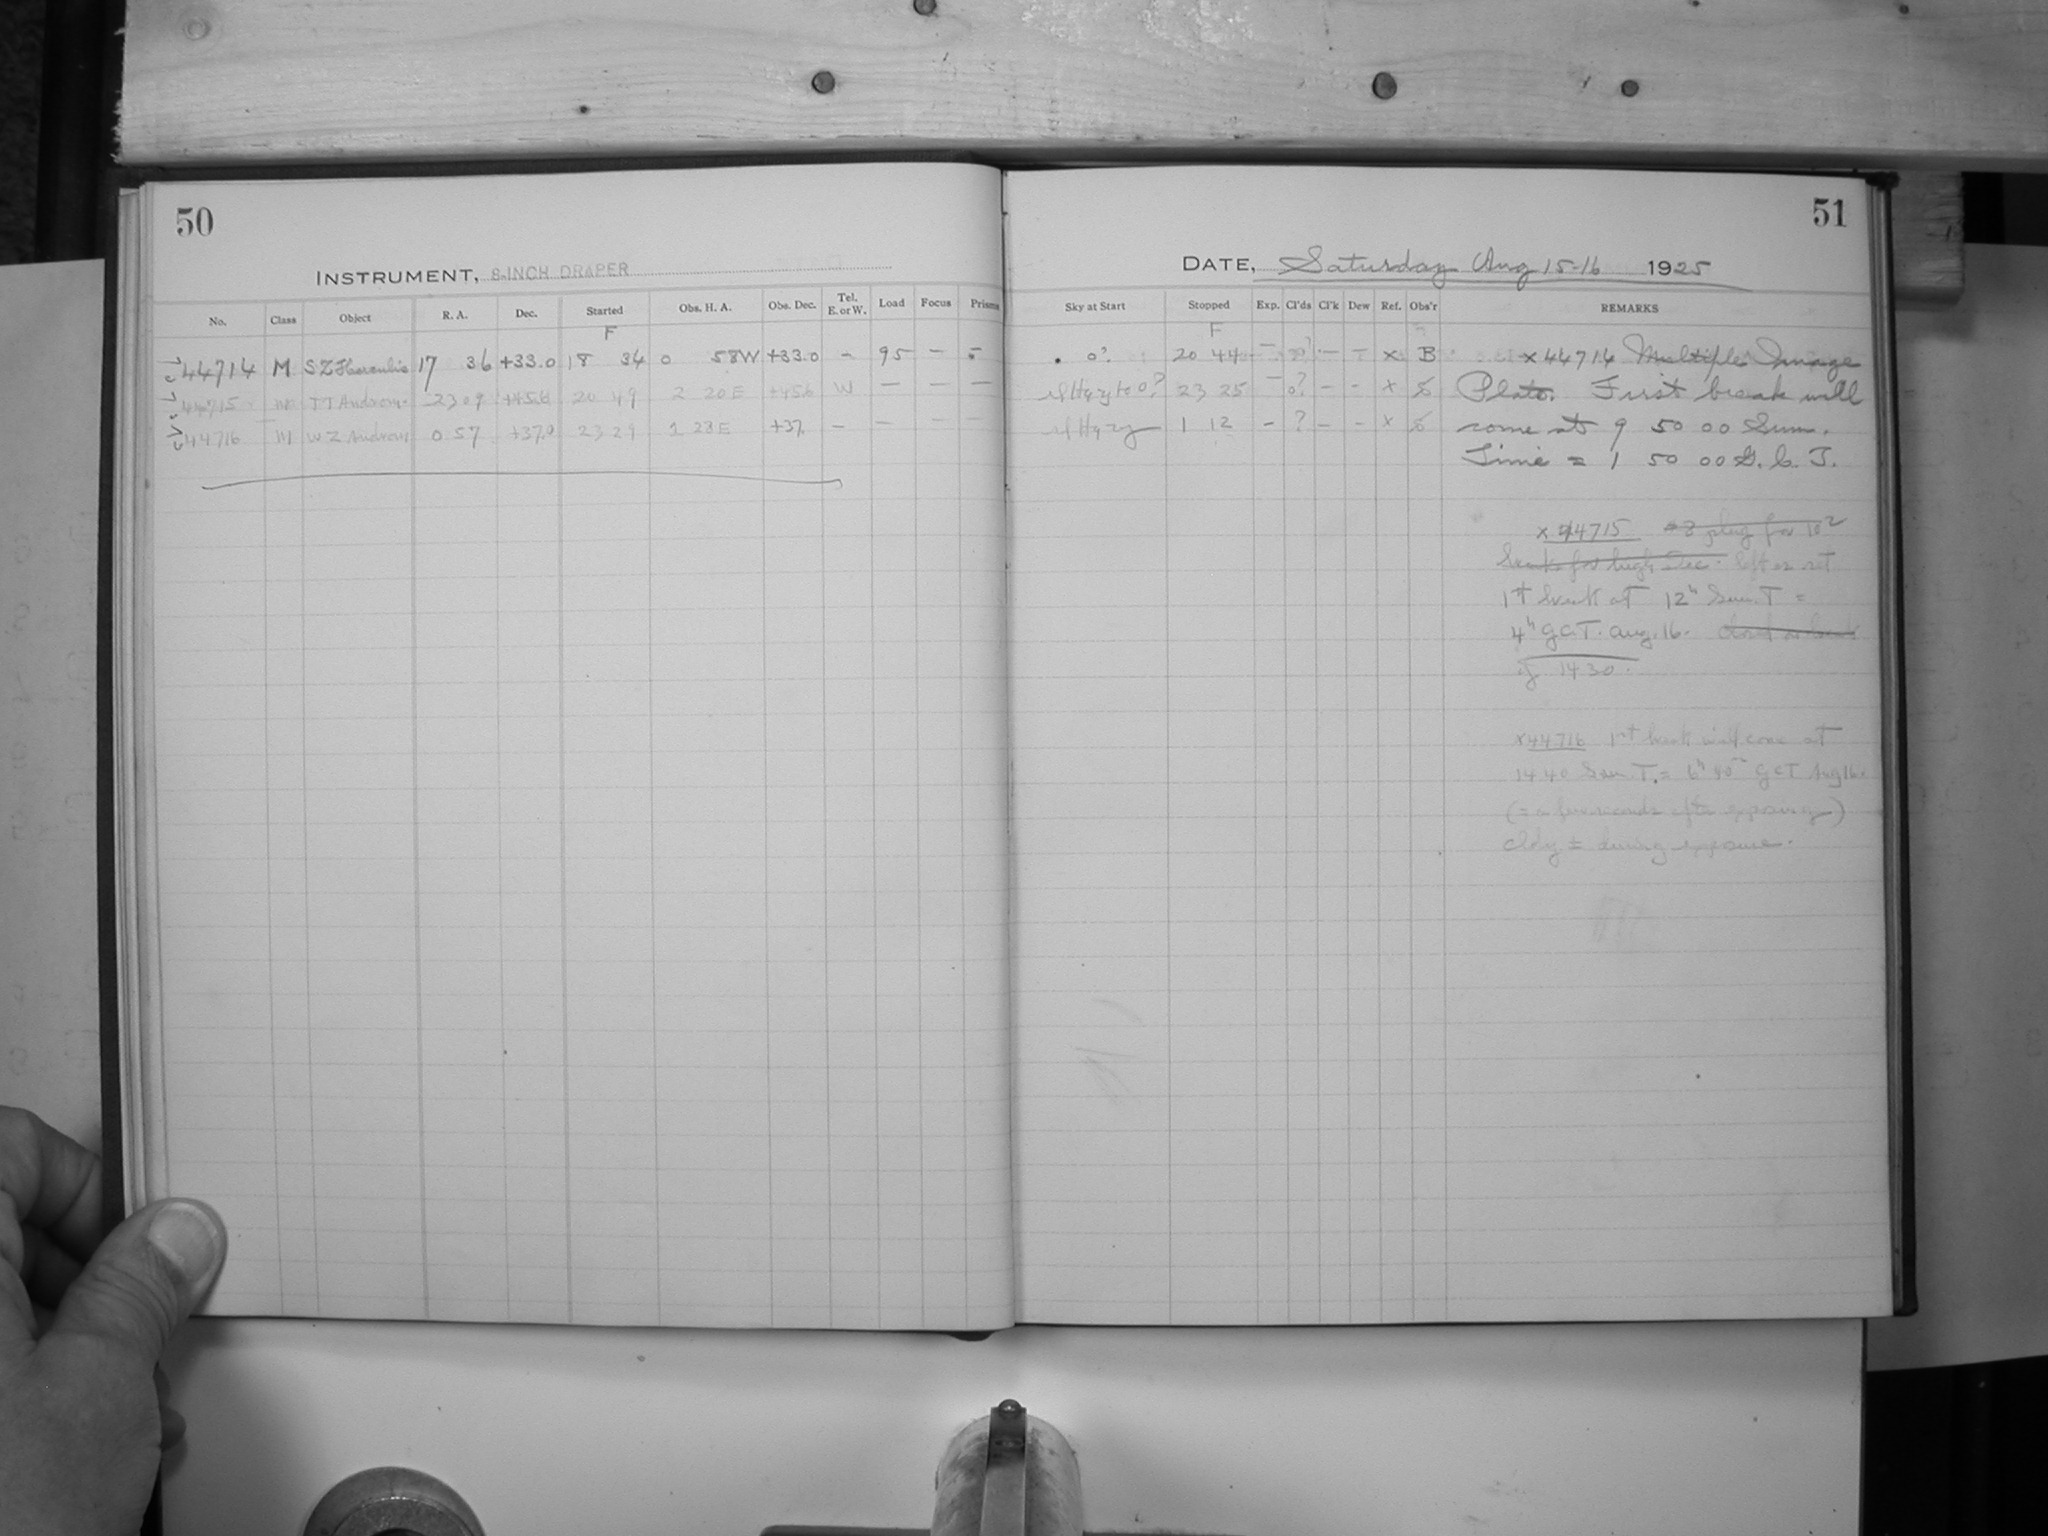 50
INSTRUMENT, 8-INCH DRAPER
No. Class Object R. A. Dec. Started Obs. H. A. Obs. Dec. Tel. E. or W. Load Focus Prisms
F
44714 M SZ Herculis 17 36 +33.0 18 34 0 58W +33.0 - 95 - -
44715 M TT Androm. 23 09 +45.6 20 49 2 20 E +45.6 W — — —
44716 M WZ Androm 0 57 +37.0 23 29 1 28 E +37. — — — —
51
DATE, Saturday Aug 15-16 1925
Sky at Start Stopped Exp. Cl'ds Cl'k Dew Ref. Obs'r REMARKS
F
o? 20 44 - - - x B x44714 Multiple Image
sl Hazy to o? 23 25 - o? - - x Plate. First break will
sl Hazy 1 12 - ? - - x come at 9 50 00 Sum.
Time = 1 50 00 G. C. T.
x 44715 plug for 10
breaks for high Dec. left on set
1st break at 12h Sum. T =
4h G.C.T. Aug. 16.
of 14 30.
x44716 1st break will come at
14 40 Sum. T. = 6h 40m GCT Aug 16.
(= a few seconds after exposure)
Cldy ± during exposure.